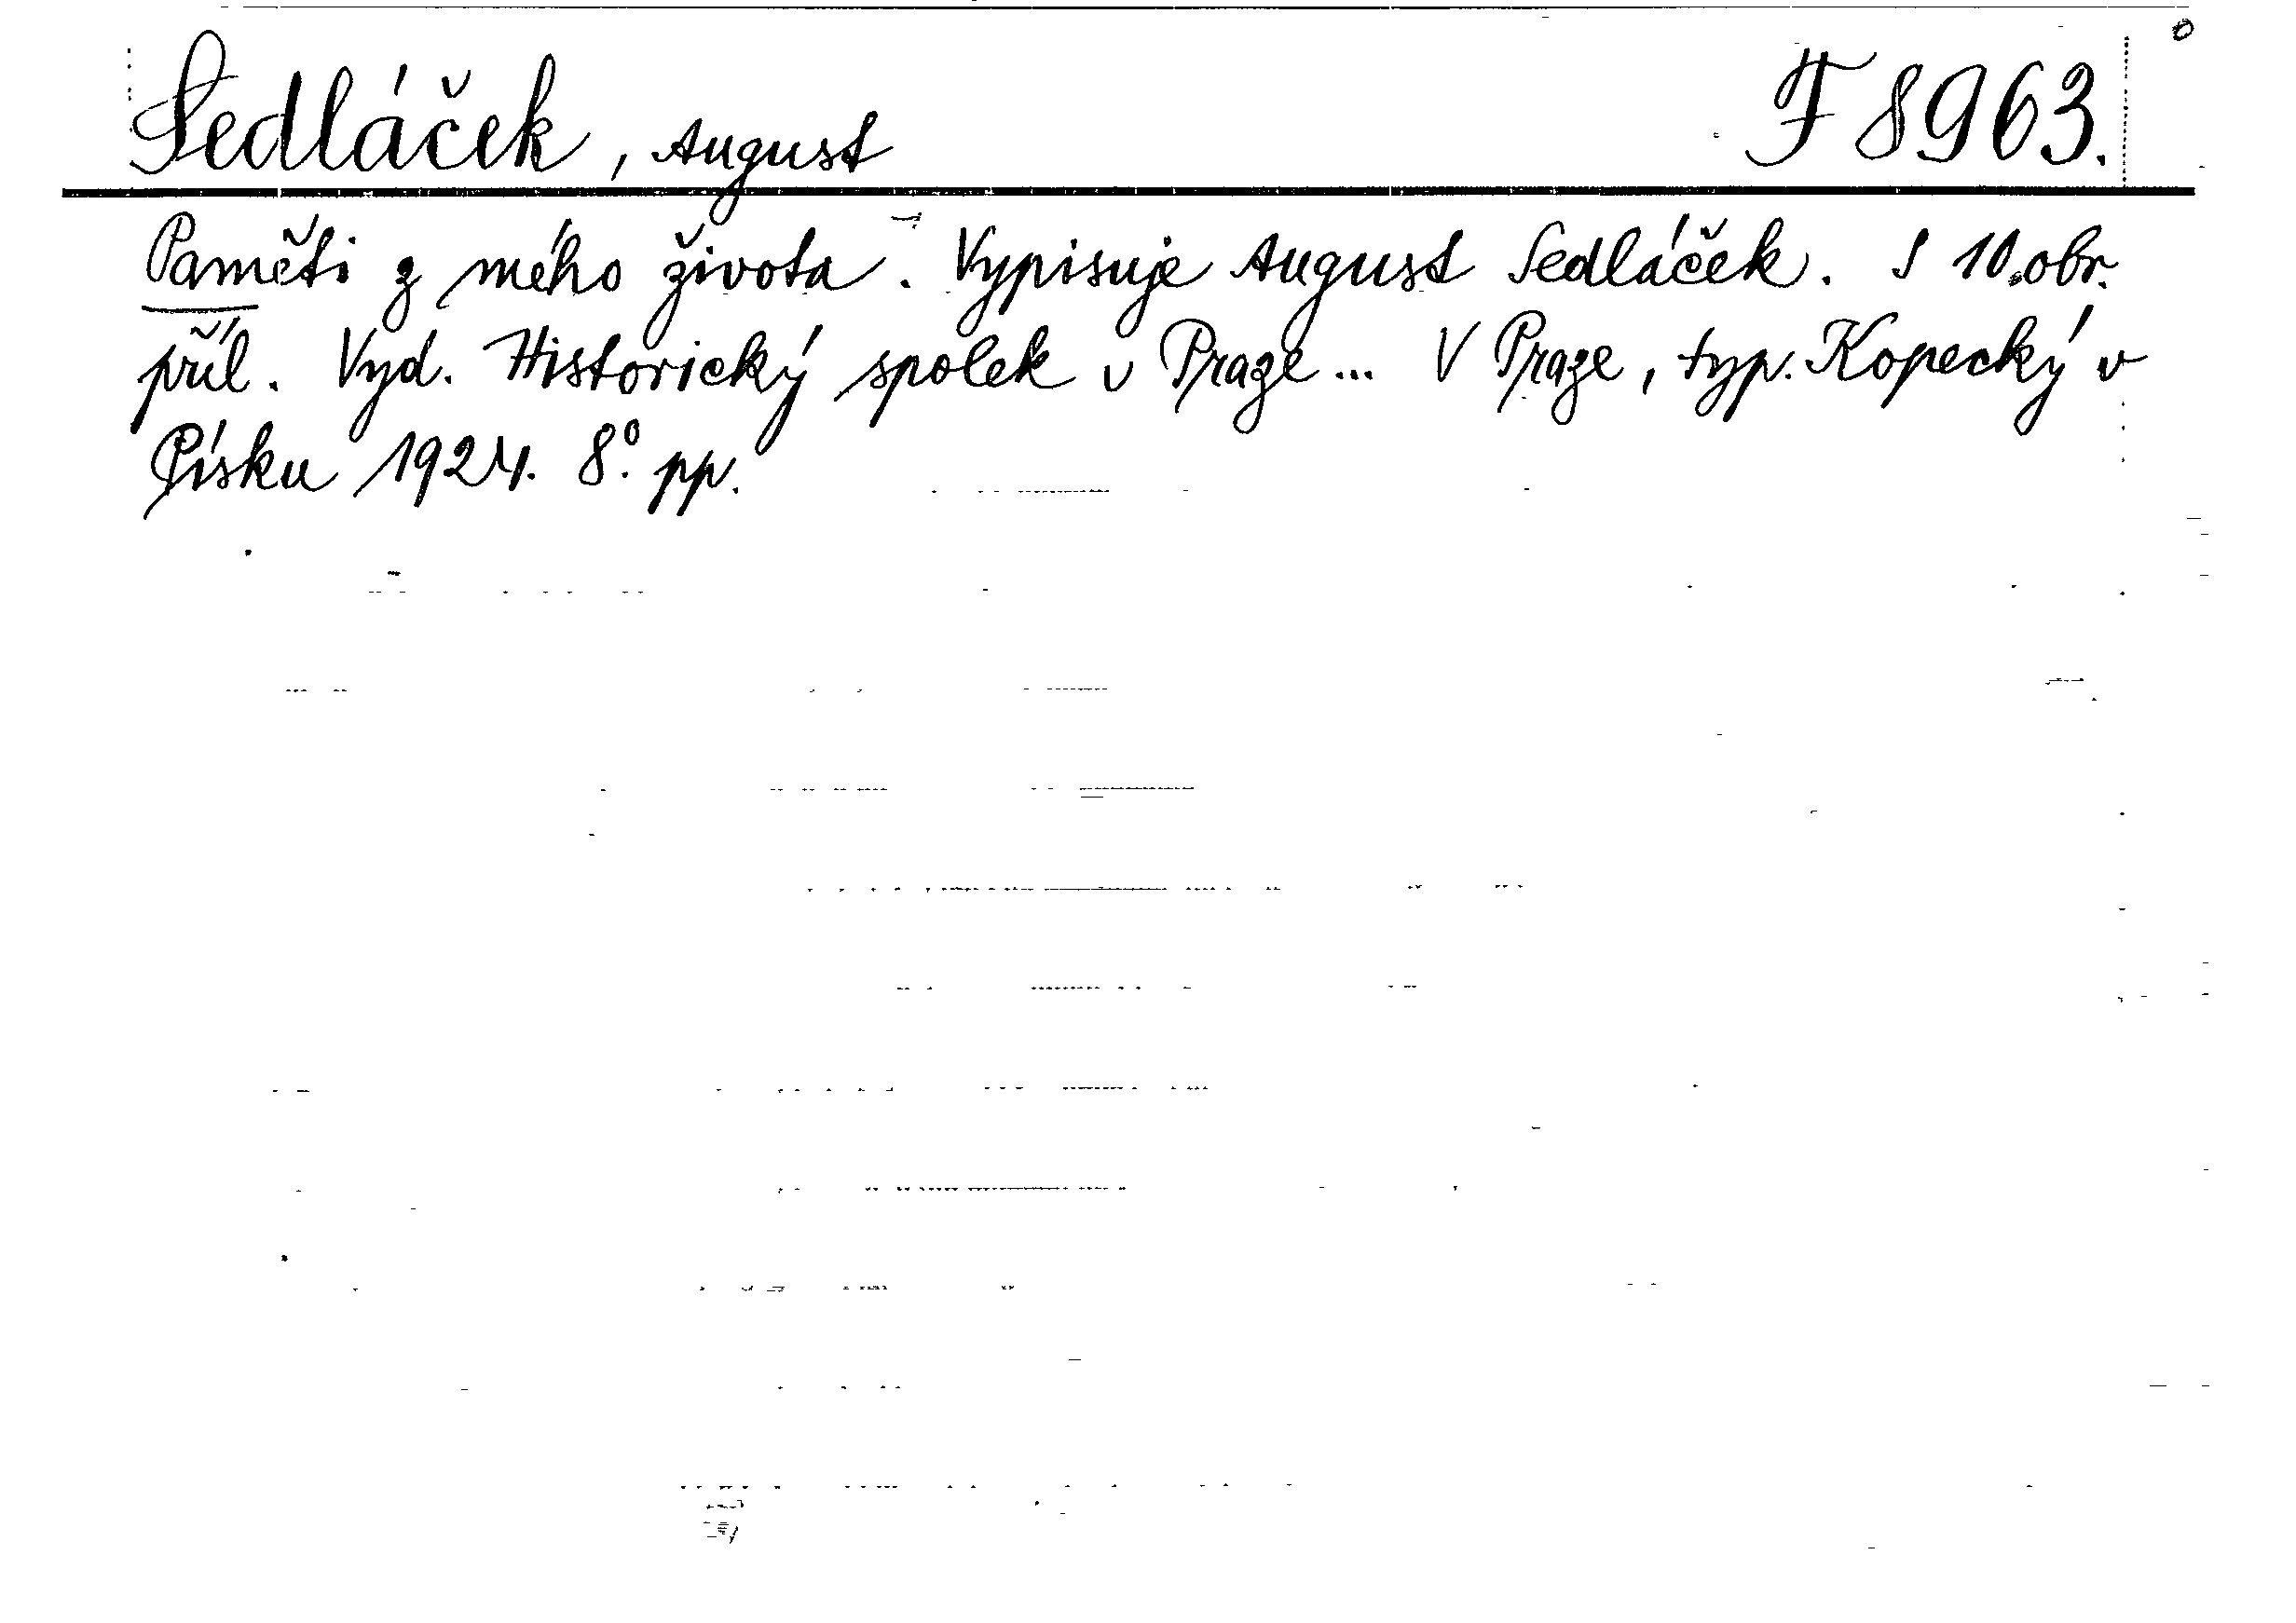 Sedláček, August F 8963.
Paměti z mého života. Vypisuje August Sedláček. S 10 obr.
příl. Vyd. Historický spolek v Praze... V Praze, typ. Kopecký v
Písku 1924. 8°. pp.